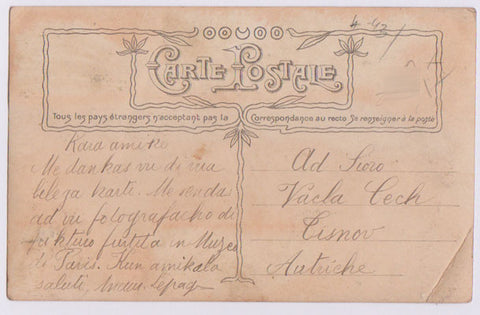 CARTE POSTALE
Tous les pays étrangers n'acceptent pas la Correspondance au recto Se renseigner à la poste
Kara amiko
Me dankas vu di via
karti. Me sendas
ad vu fotografacho di
furtita in Muzeo
di Paris. Kun amikala
saluti,
Ad Sioro
Vacla Cech
Tisnov
Autriche